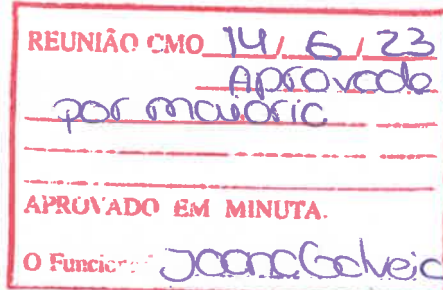 REUNIÃO CMO 14/6/23
Aprovada
por maioria
APROVADO EM MINUTA.
O Funcio Joana Galveia